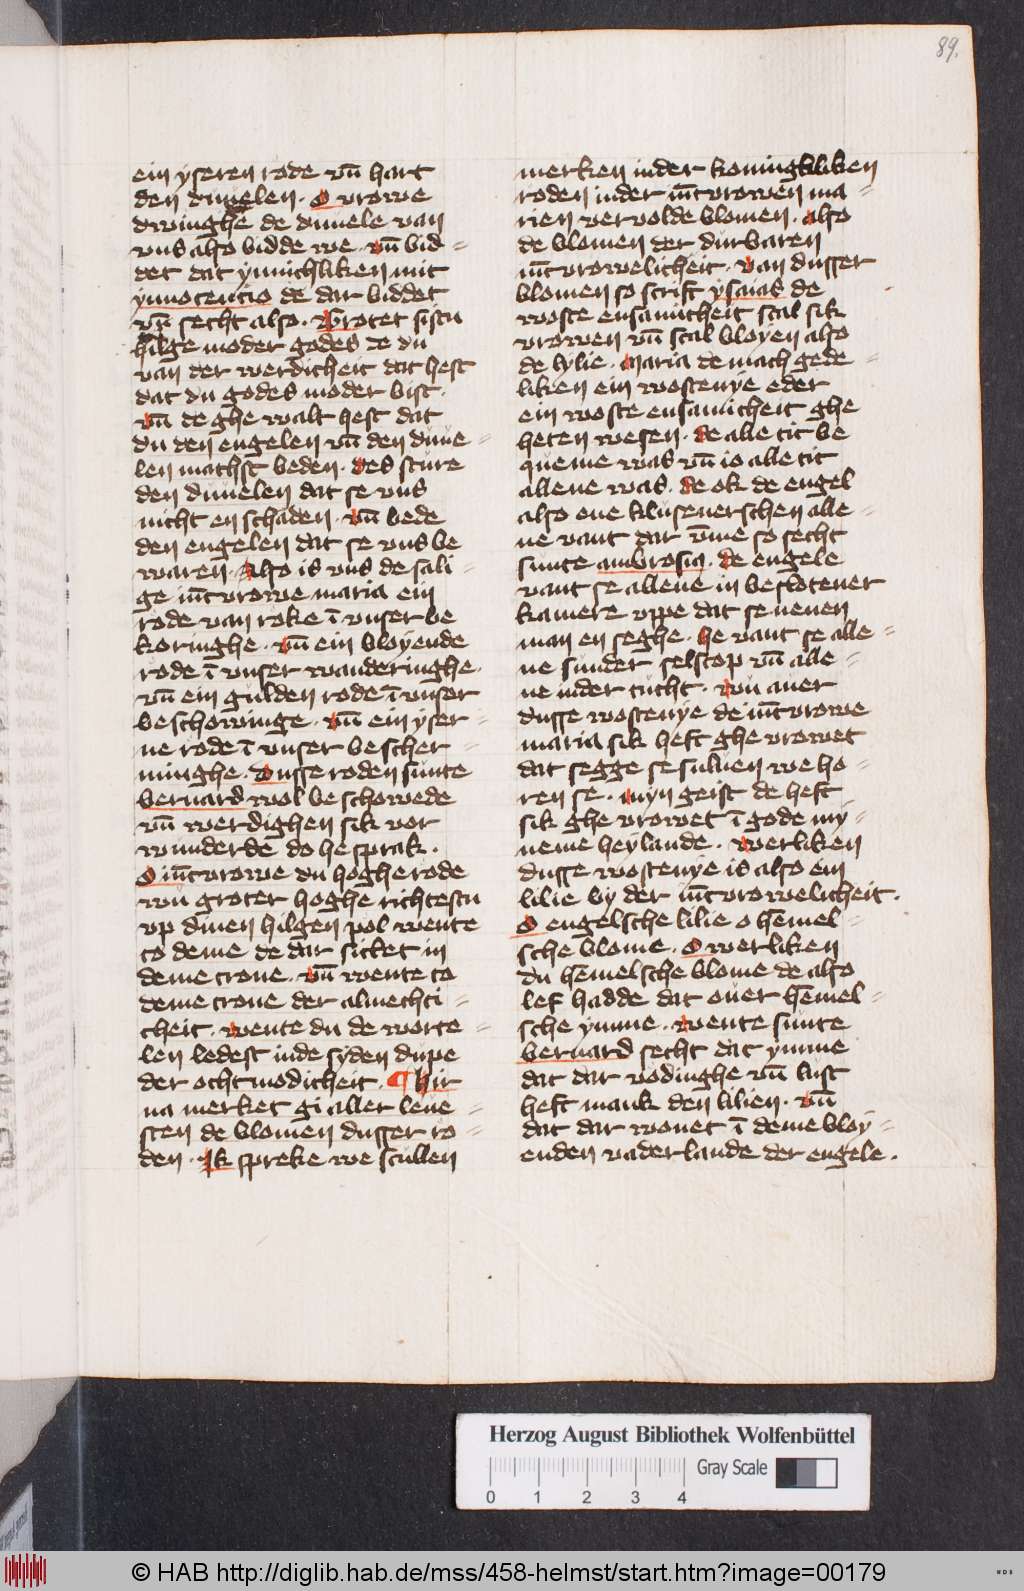 89.
ein yseren rode vn̄ hart
den duuelen. O vrowe
dwinghe de duuele van
vns also bidde we. vn̄ bid=
det dat ynnichliken mit
ynnocencio de dar biddet
vn̄ secht also. Grotet sistu
hilge moder godes de du
van der werdicheit dat hest
dat du godes moder bist.
vn̄ de ghe walt hest dat
du den engelen vn̄ den duue=
len machst beden. des sture
den duuelen dat se vns
nicht en schaden. vn̄ bede
den engelen dat se vns be
waren. Also is vns de sali=
ge iūcvrowe maria ein
rode van roke ī vnser be
koringhe. vn̄ ein bloyende
rode ī vnser wanderinghe.
vn̄ ein gulden rode ī vnser
beschowinge. vn̄ ein yser=
ne rode ī vnser bescher=
minghe. Dusse roden sunte
bernard wol beschowede
vn̄ werdighen sik vor
wunderde do he sprak.
O iūcvrowe du hoghe rode
wu groter hoghe richtestu
vp dinen hilgen pol wente
to deme de dar sittet in
deme trone. vn̄ wente to
deme trone der almechti=
cheit. wente du de worte=
len ledest inde syden dupe
der othmodicheit. ¶ Hir
na merket gi aller leue=
sten de blomen dusser ro=
den. Ik spreke we scullen
merken inder koningkliken
roden inder iūcvrowen ma=
rien vervolde blomen. also
de blomen der durbaren
iūcvrowelicheit. van dusser
blomen so scrift ysaias de
woste ensamicheit scal sik
vrowen vn̄ scal bloyen also
de lylie. Maria de mach gede=
liken ein wostenye eder
ein woste ensamicheit ghe
heten wesen. de alle tit be
queme was vn̄ io alle tit
allene was. de ok de engel
also ene klusenerschen alle=
ne vant dar vm̄e so secht
sunte ambrosia. de engele
vant se allene in beslotener
kamere vppe dat se nenen
man en seghe. he vant se alle=
ne sunder selscop vn̄ alle=
ne inder tucht. wu auer
dusse wostenye de iūcvrowe
maria sik heft ghe vrowet
dat segge se suluen we ho=
ren se. myn geist de heft
sik ghe vrowet ī gode my=
neme heylande. werliken
dusse wostenye is also ein
lilie by der iūcvrowelicheit.
O engelsche lilie o hēmel=
sche blome. O werliken
du hēmelsche blome de also
lef hadde dat ouer hēmel=
sche ymme. wente sunte
bernard secht dat ymme
dat dar vodinghe vn̄ lust
heft mank den lilien. vn̄
dat dar wonet ī deme bloy=
enden vaderlande der engele.
Herzog August Bibliothek Wolfenbüttel
Gray Scale
0 1 2 3 4
© HAB http://diglib.hab.de/mss/458-helmst/start.htm?image=00179